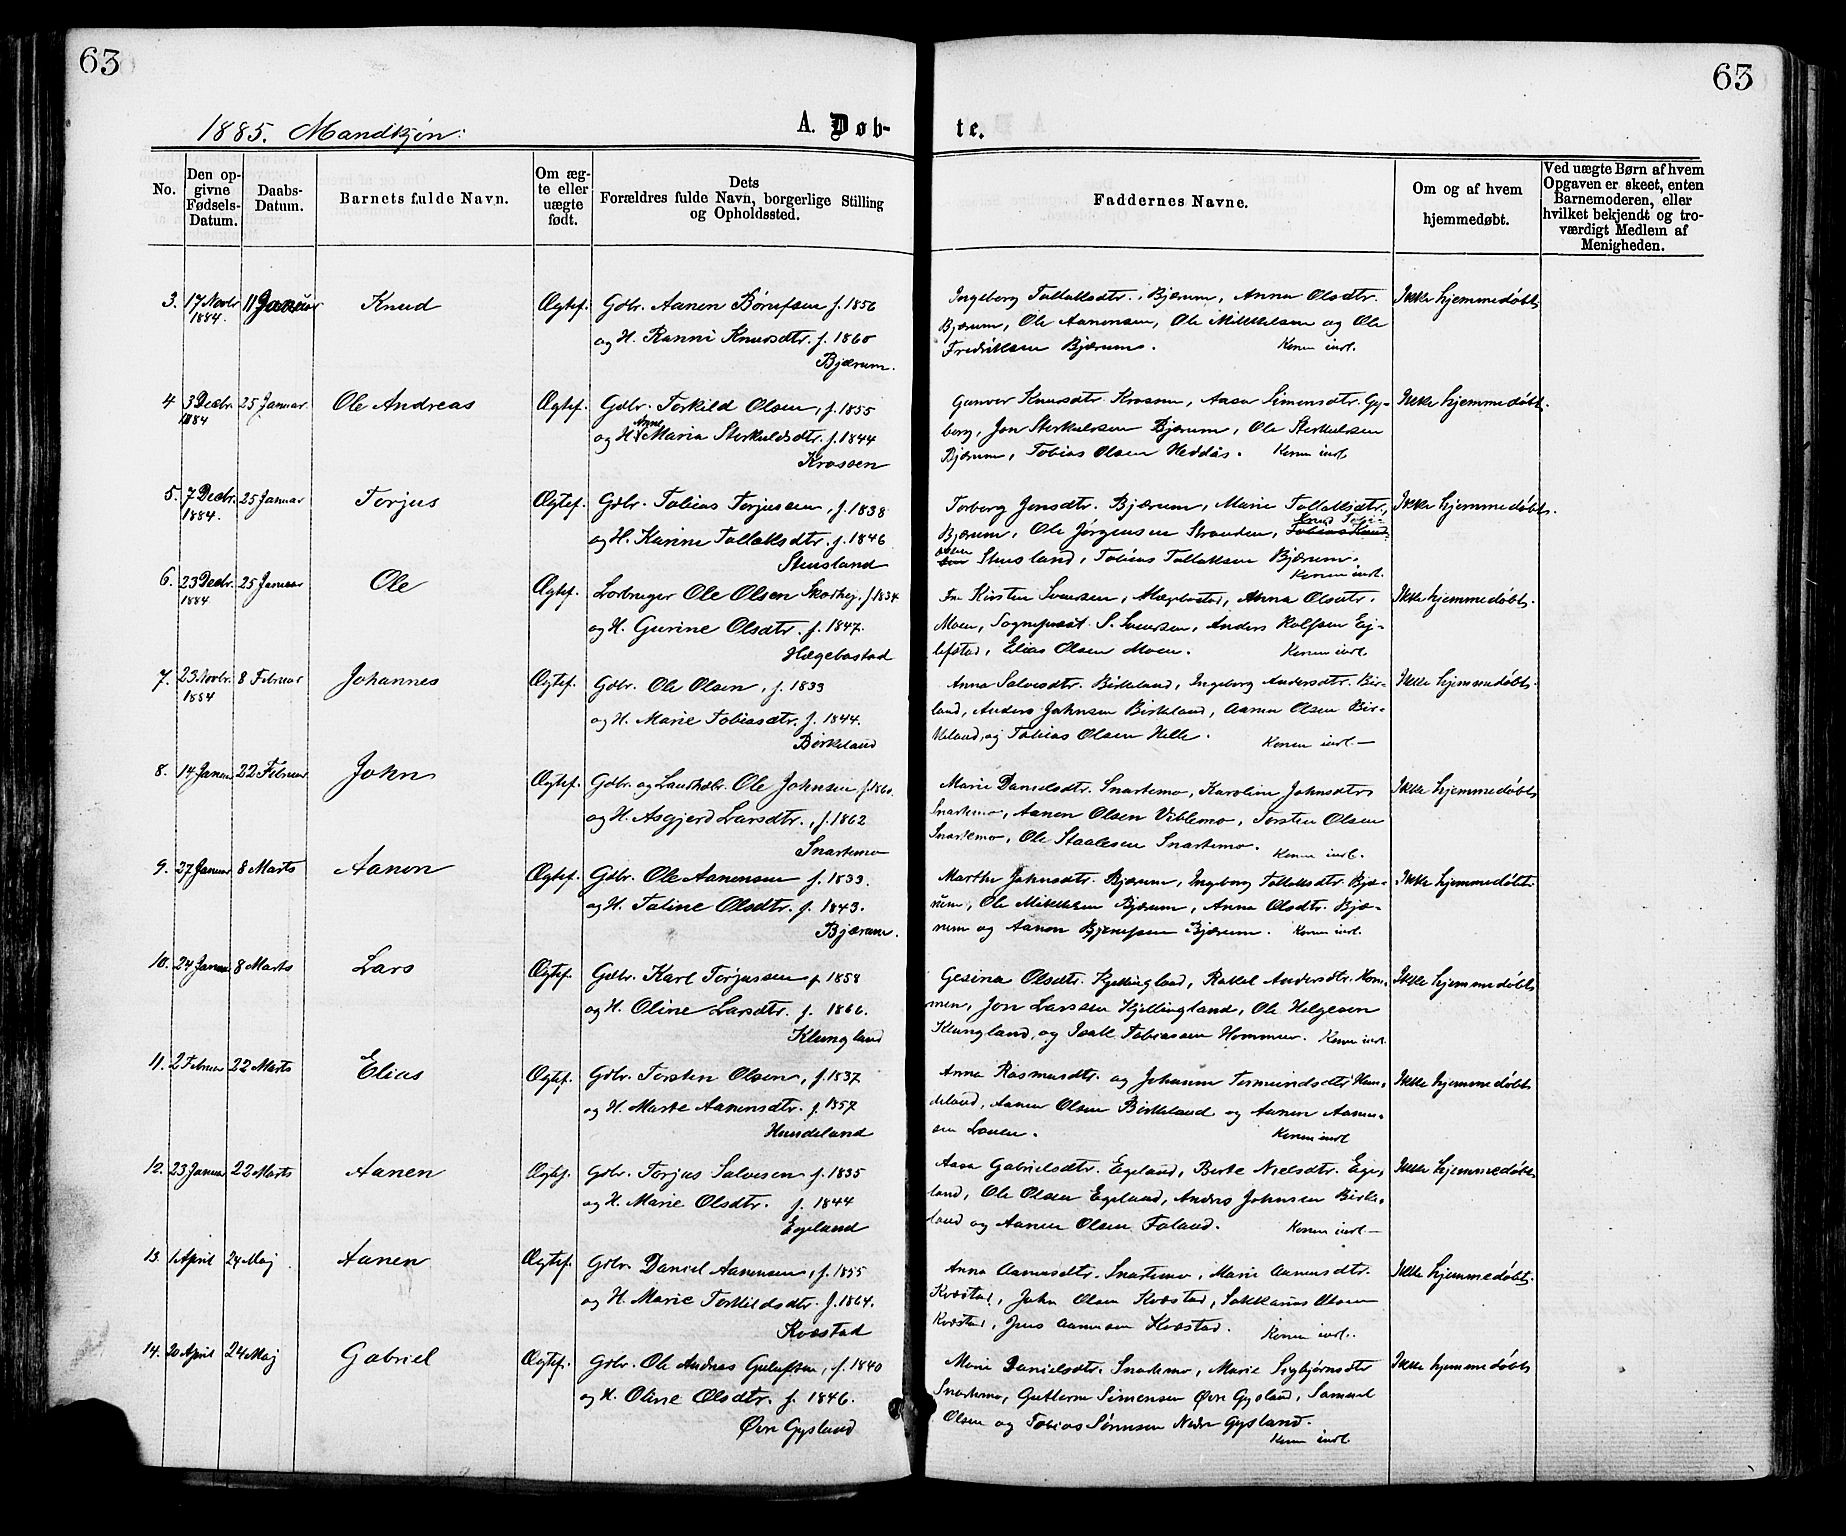 63
63
1885. Mandkjøn:
A. Døb-
te.
No.
Den op-
givne
Fødsels-
Datum.
Daabs-
Datum.
Barnets fulde Navn.
Om æg-
te eller
uægte
født.
Dets
Forældres fulde Navn, borgerlige Stilling
og Opholdssted.
Faddernes Navne.
Om og af hvem
hjemmedøbt.
Ved uægte Børn af hvem
Opgaven er skeet, enten
Barnemoderen, eller
hvilket bekjendt og tro-
værdigt Medlem af
Menigheden.
3. 17 Novbr 1884. 11 Januar Knud Ægtef. Gdbr. Aanen f. 1856
og H. Ranni Knudsdtr. f. 1860
Bjærum.
Ingeborg Tallaksdtr. Bjærum, Anna Olsdtr.
Bjærum, Ole Aanensen, Ole Mikkelsen og Ole
Fredriksen Bjærum. Konen indl.
Ikke hjemmedøbt
4 3 Decbr. 1884 25 Januar Ole Andreas Ægtef. Gdbr. Torkild Olsen, f. 1855
og H. Anne Maria Sterkuldsdtr. f. 1844
Krossen
Gunvor Knudsdtr Krossen, Aasa Simensdtr. Gy-
berg, Jon Bjærum, Ole
Bjærum, Tobias Olsen Heddås. Konen indl
Ikke hjemmedøbt.
5. 7 Decbr. 1884. 25 Januar Torjus Ægtef. Gdbr. Tobias Torjussen, f. 1838
og H. Karine Tallaksdtr. f. 1846
Stensland
Torborg Jonsdtr. Bjærum, Marie Tallaksdtr,
Bjærum, Ole Jørgensen Stranden, Knud Tobi-
Stensland, Tobias Tallaksen Bjærum.
Konen indl.
Ikke hjemmedøbt.
6. 23 Decbr. 1884 25 Januar Ole Ægtef. Ole Olsen f. 1834
og H. Gurine Olsdtr. f. 1847.
Hægebostad
Kirsten Hægebostad, Anna Olsdtr.
Moen, Sogneprest S. Anders Rolfsen Ej-
Elias Olsen Moen. Konen indl
Ikke hjemmedøbt.
7. 23 Novbr. 1884 8 Februar Johannes Ægtef. Gdbr. Ole Olsen, f. 1833
og H. Marie Tobiasdtr. f. 1844.
Birkeland
Anna Salvesdtr. Birkeland, Ingeborg Andersdtr. Bir-
land, Anders Johnsen Birkeland, Aanen Olsen Bir-
keland, og Tobias Olsen Helle. Konen indl. —
Ikke hjemmedøbt.
8. 14 Januar 22 Februar John Ægtef. Gdbr. og Ole Johnsen f. 1860.
og H. Asgjerd Larsdtr., f. 1862
Snartemo
Marie Danielsdtr. Snartemo, Karoline Johnsdtr
Snartemo, Aanen Olsen Viblemo, Torsten Olsen
Snartemo, Ole Staalesen Snartemo. Konen indl.
Ikke hjemmedøbt
9. 27 Januar 8 Marts Aanon Ægtef. Gdbr. Ole Aanensen f. 1833.
og H. Taline Olsdtr. f. 1843.
Bjærum.
Marthe Johnsdtr. Bjærum, Ingeborg Tallaksdtr. Bjæ-
rum, Ole Mikkelsen Bjærum, Anna Olsdtr. Bjæ-
rum og Aanon Bjærum. Konen indl.
Ikke hjemmedøbt.
10. 24 Januar 8 Marts Lars Ægtef. Gdbr. Karl Torjussen f. 1858
og H. Oline Larsdtr. f. 1866.
Klungland
Gesina Olsdtr. Kjellingland, Rakel Andersdtr. Hom-
men, Jon Larssen Kjellingland, Ole Helgesen
Klungland, og Isak Tobiassen Hommen. Konen indl.
Ikke hjemmedøbt
11. 2 Februar 22 Marts Elias Ægtef. Gdbr. Torsten Olsen, f. 1837
og H. Marte Aanensdtr. f. 1857
Hundeland
Anna Rasmusdtr. og Johanne Hun-
deland, Aanen Olsen Birkeland og Aanen Aanen-
sen Konen indl
Ikke hjemmedøbt
12. 23 Januar 22 Marts Aanen Ægtef. Gdbr. Torjus Salvesen f. 1835
og H. Marie Olsdtr. f. 1844
Egeland
Aasa Gabrielsdtr. Egeland, Berte Nielsdtr. Ege-
land, Ole Olsen Egeland, Anders Johnsen Birke-
land og Aanen Olsen Faland. Konen indl. —
Ikke hjemmedøbt
13. 1 April 24 Maj Aanen Ægtef. Gdbr. Daniel Aanensen, f. 1855
og H. Marie Torkildsdtr. f. 1864.
Kvåstad
Anna Aanensdtr. Snartemo, Marie Aanensdtr.
Kvåstad, John Olsen Kvåstad, Sakkarias Olsen
Kvåstad, Jens Aanensen Kvåstad. Konen indl.
Ikke hjemmedøbt.
14. 20 April 24 Maj Gabriel Ægtef. Gdbr. Ole Andreas f. 1840
og H. Oline Olsdtr. f. 1846.
Øvre Gysland
Marie Danielsdtr. Snartemo, Marie Sigbjørnsdtr
Snartemo, Guttorm Simensen Øvre Gysland, Samuel
Olsen og Tobias Sørensen Nedre Gysland.
Konen indl.
Ikke hjemmedøbt